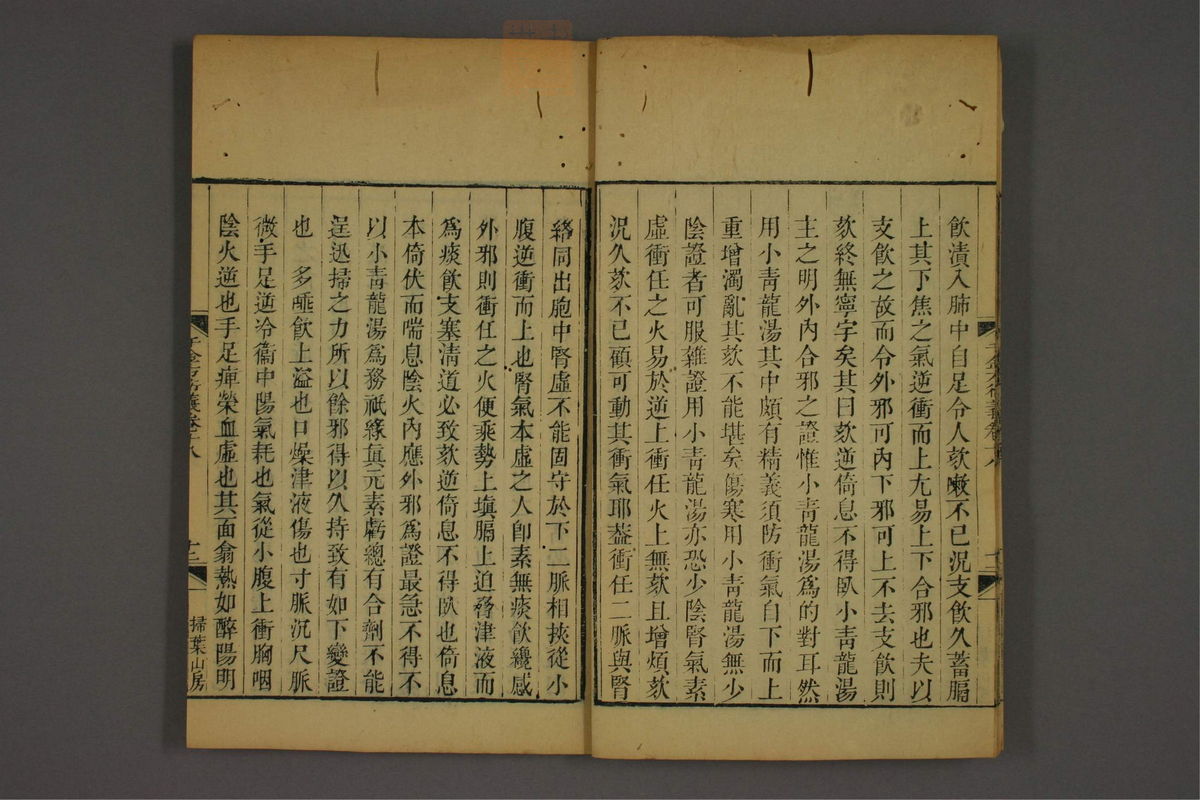 飲漬入肺中自足令人欬嗽不已況支飲久蓄膈
上其下焦之氣逆衝而上尤易上下合邪也夫以
支飲之故而令外邪可內下邪可上不去支飲則
欬終無寧宇矣其曰欬逆倚息不得臥小靑龍湯
主之明外內合邪之證惟小靑龍湯爲的對耳然
用小靑龍湯其中頗有精義須防衝氣自下而上
重增濁亂其欬不能堪矣傷寒用小靑龍湯無少
陰證者可服雜證用小靑龍湯亦恐少陰腎氣素
虛衝任之火易於逆上衝任火上無欬且增煩欬
況久欬不已顧可動其衝氣耶蓋衝任二脈與腎
絡同出胞中腎虛不能固守於下二脈相挾從小
腹逆衝而上也腎氣本虛之人卽素無痰飮纔感
外邪則衝任之火便乘勢上塡膈上迫脅津液而
爲痰飮支塞清道必致欬逆倚息不得臥也倚息
本倚伏而喘息陰火內應外邪爲證最急不得不
以小靑龍湯爲務祇緣眞元素虧總有合劑不能
逞迅掃之力所以餘邪得以久持致有如下變證
也　多唾飮上溢也口燥津液傷也寸脈沉尺脈
微手足逆冷衞中陽氣耗也氣從小腹上衝胸咽
陰火逆也手足痺榮血虛也其面翕熱如醉陽明
千金方衍義卷十八
十二
掃葉山房